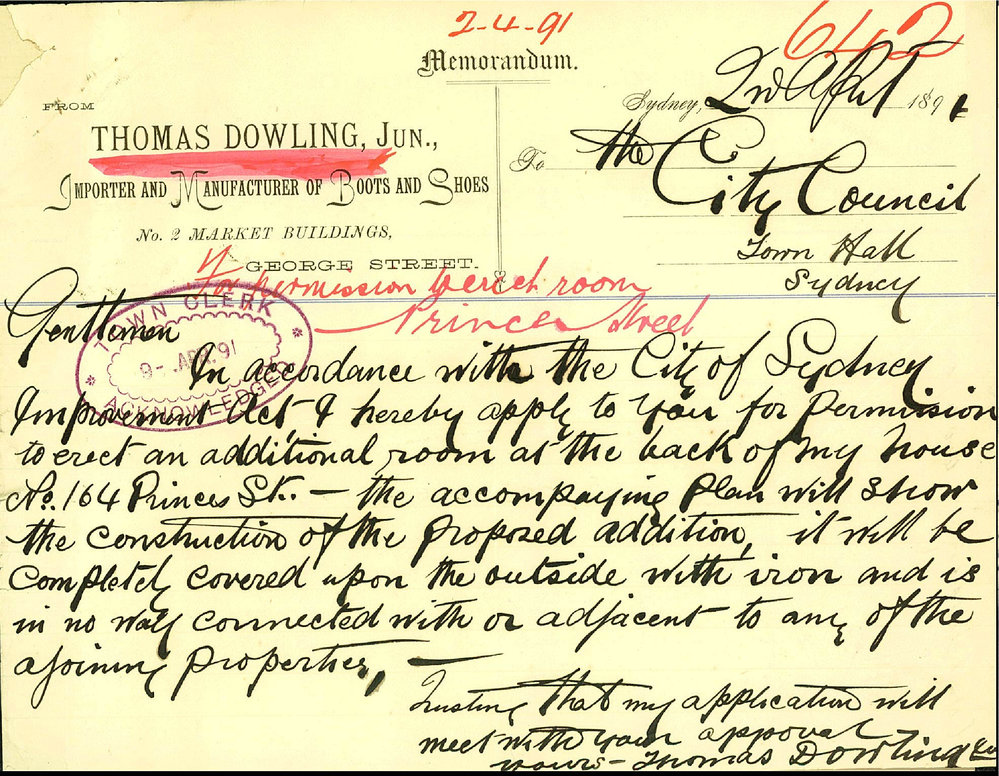 2-4-91
642
Memorandum.
FROM
THOMAS DOWLING, JUN.,
IMPORTER AND MANUFACTURER OF BOOTS AND SHOES
No. 2 MARKET BUILDINGS,
GEORGE STREET.
Sydney, 2nd Aprl 1891
To the City Council
Town Hall
Sydney
For permission to erect room
Princes Street
TOWN CLERK
9-APR.91
ACKNOWLEDGED
Gentlemen
In accordance with the City of Sydney
Improvement Act, I hereby apply to you for permission
to erect an additional room at the back of my house
No. 164 Princes St. — the accompaying plan will show
the construction of the proposed addition, it will be
completely covered upon the outside with iron and is
in no way connected with or adjacent to any of the
ajoining properties, —
Trusting that my application will
meet with your approval
yours - Thomas Dowling